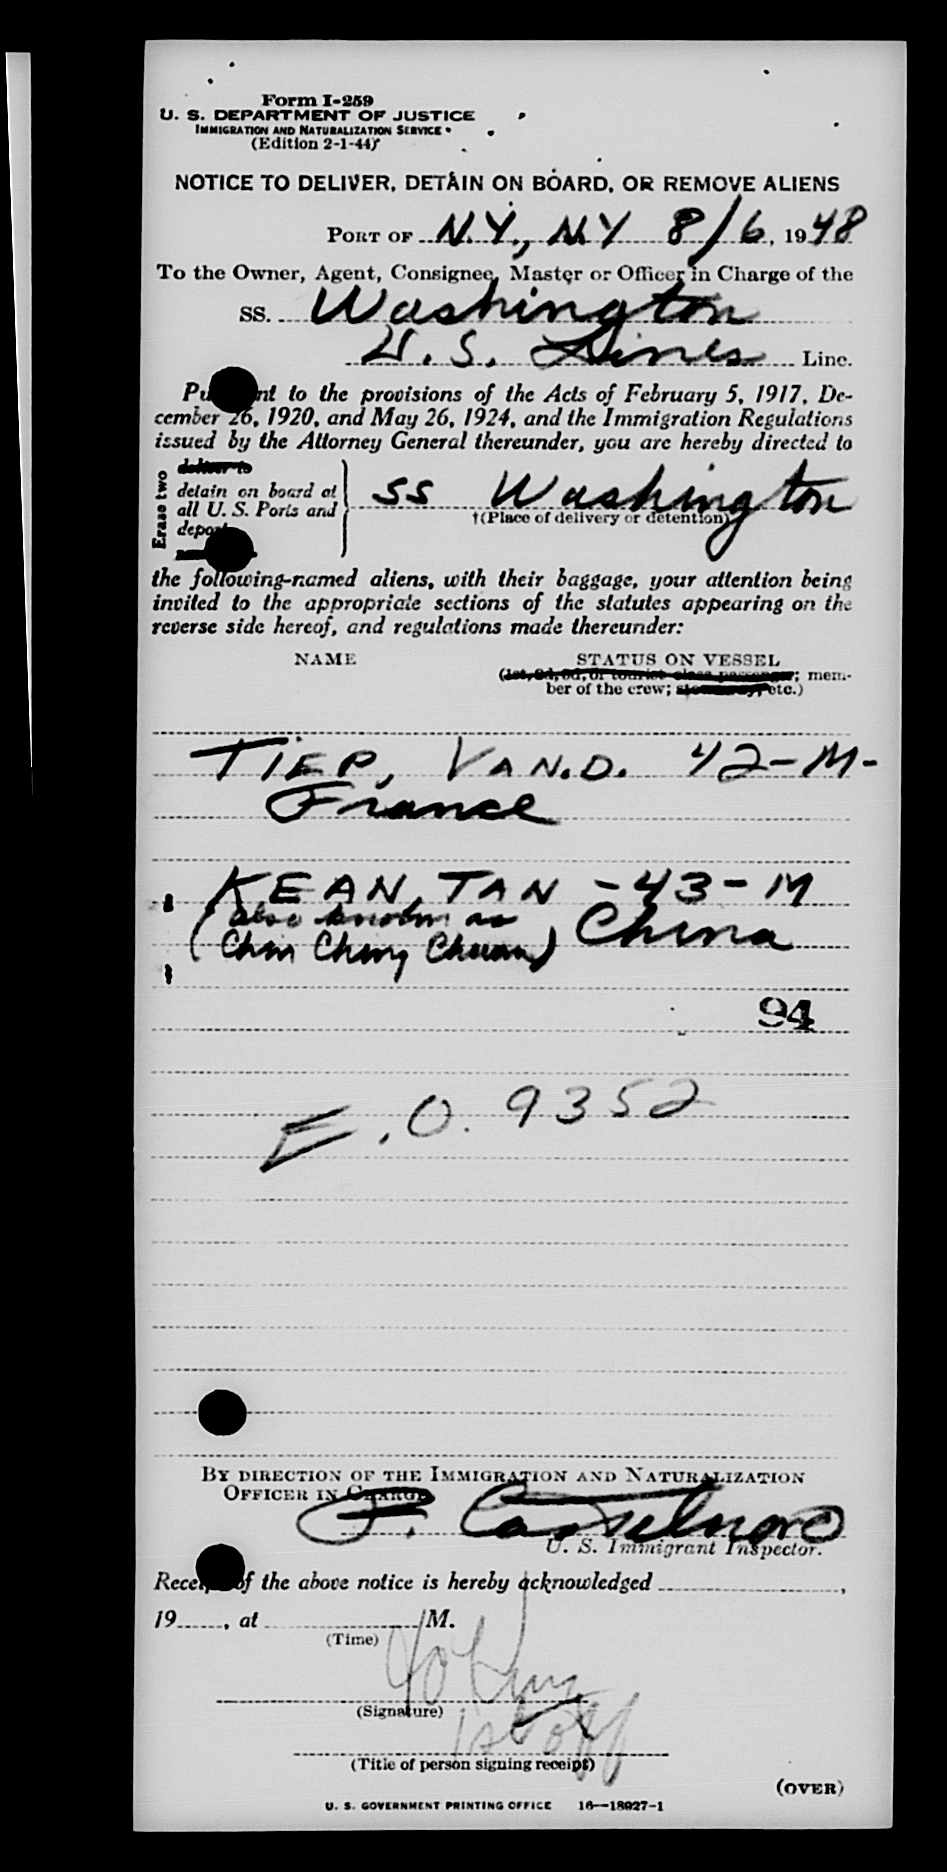 Form I-259
U. S. DEPARTMENT OF JUSTICE
IMMIGRATION AND NATURALIZATION SERVICE
(Edition 2-1-44)
NOTICE TO DELIVER, DETAIN ON BOARD, OR REMOVE ALIENS
PORT OF N.Y., N.Y 8/6, 1948
To the Owner, Agent, Consignee, Master or Officer in Charge of the
SS. Washington
U.S. Lines Line.
Pu nt to the provisions of the Acts of February 5, 1917, De-
cember 26, 1920, and May 26, 1924, and the Immigration Regulations
issued by the Attorney General thereunder, you are hereby directed to
Erase two
deliver to
detain on board at
all U. S. Ports and
depor
SS Washington
†(Place of delivery or detention)
the following-named aliens, with their baggage, your attention being
invited to the appropriate sections of the statutes appearing on the
reverse side hereof, and regulations made thereunder:
NAME STATUS ON VESSEL
(1st, 2d, 3d, or tourist class passenger; mem-
ber of the crew; stowaway, etc.)
TIEP, VAN.D. 42-M-
France
KEAN, TAN - 43 - M
(also known as China
Chin Ching Chuan)
94
E.O. 9352
BY DIRECTION OF THE IMMIGRATION AND NATURALIZATION
OFFICER IN CHARGE
P.
U. S. Immigrant Inspector.
Receip of the above notice is hereby acknowledged ,
19 , at M.
(Time)
(Signature)
(Title of person signing receipt)
(OVER)
U. S. GOVERNMENT PRINTING OFFICE 16—18927-1